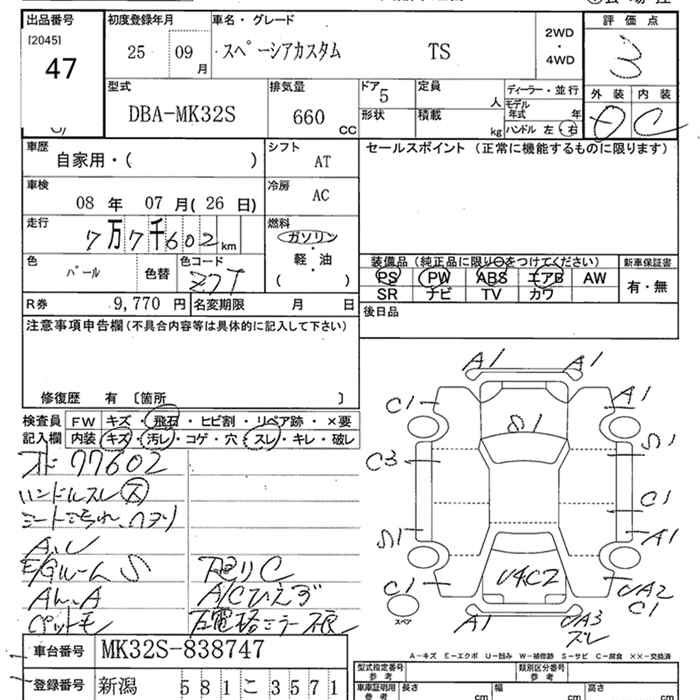 出品番号 初度登録年月 車名・グレード 評価点
[2045] 47 25 09 月 スペーシアカスタム TS 2WD・4WD 3
型式 DBA-MK32S 排気量 660 CC ドア 5 形状 定員 人 積載 kg ディーラー・並行 モデル年式 年 ハンドル 左 右 外装 内装 C
車歴 自家用・( ) シフト AT
セールスポイント (正常に機能するものに限ります)
車検 08 年 07 月( 26 日) 冷房 AC
走行 7万7千602 km 燃料 ガソリン・軽・油 ( )
色 パール 色替 色コード Z7T
装備品(純正品に限り○をつけてください) 新車保証書
PS PW ABS エアB AW 有・無
SR ナビ TV カワ
R券 9,770 円 名変期限 月 日
後日品
注意事項申告欄(不具合内容等は具体的に記入して下さい)
修復歴 有 〔箇所 〕
検査員 FW キズ・飛石・ヒビ割・リペア跡・×要
記入欄 内装 キズ・汚レ・コゲ・穴・スレ・キレ・破レ
77602
ハンドルスレ
A、U
E/Gルーム S 下廻り C
A/C
A1 A1
C1 A1
S1 S1
C3 C1
S1 A1
C1 U4C2 UA2
C1
スペア A1 UA3
スレ
A－キズ E－エクボ U－凹み W－補修跡 S－サビ C－腐食 ××－交換済
車台番号 MK32S-838747
登録番号 新潟 581 こ 3571
型式指定番号 参考 類別区分番号 参考
車庫証明用 参考 長さ cm 幅 cm 高さ cm